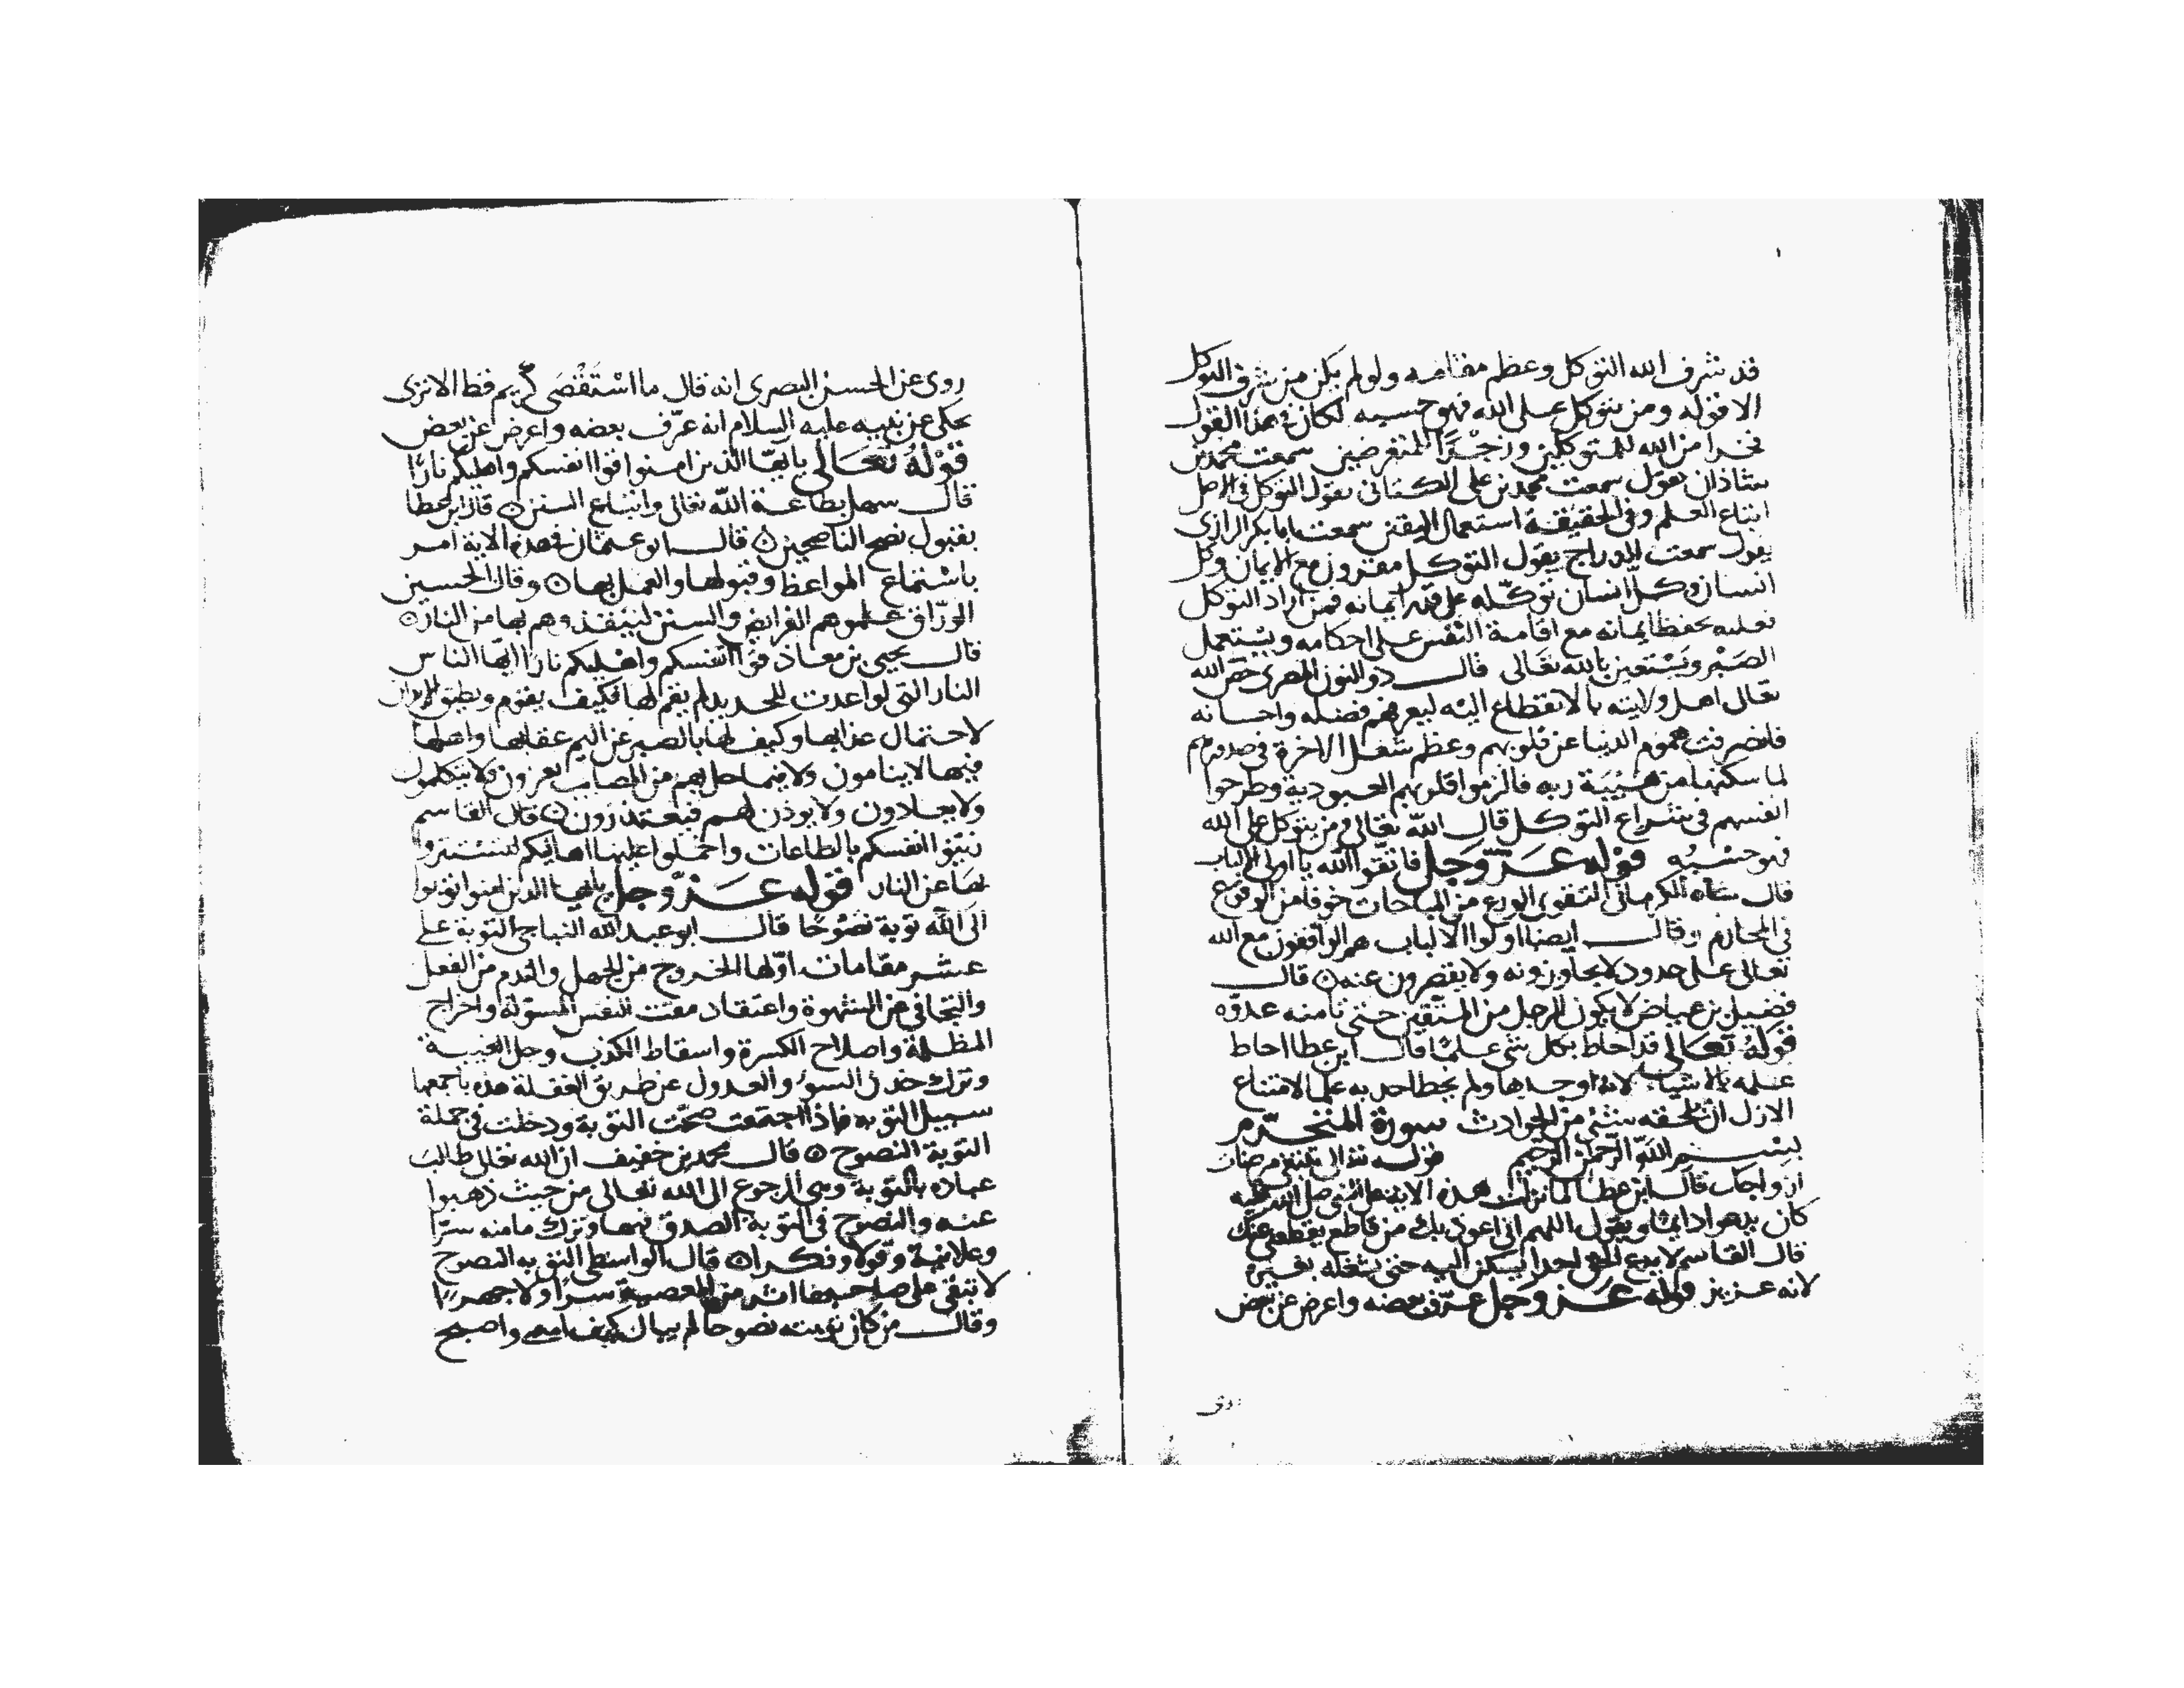 قد شرف الله التوكل وعظم مقامه ولو لم يكن من شرف التوكل
الا قوله ومن يتوكل على الله فهو حسبه لكان في هذا القول
فخرا من الله للمتوكلين وزجرًا للمتعرضين سمعت محمد بن
شاذان يقول سمعت محمد بن على الكتانى يقول التوكل فى الاصل
اتباع العلم وفى الحقيقة استعمال اليقين سمعت ابا بكر الرازى
يقول سمعت الدراج يقول التوكل مقرون مع الايمان وكل
انسان وكل انسان توكله على قدر ايمانه فمن اراد التوكل
فعليه بحفظ ايمانه مع اقامة النفس على احكامه ويستعمل
الصبر ويستعين بالله تعالى قال ذو النون المصرى خص الله
تعالى اهل ولايته بالانقطاع اليه ليعرفهم فضله واحسانه
فانصرفت هموم الدنيا عن قلوبهم وعظم شغل الاخرة فى صدورهم
لما سكنها من هيبة ربه فالزموا قلوبهم العبودية وطرحوا
انفسهم فى شراع التوكل قال الله تعالى ومن يتوكل على الله
فهو حسبُه قوله عَزّ وَجَل فاتقوا الله يا اولى الالباب
قال شاه الكرمانى التقوى الورع من المباحات خوفا من الوقوع
فى المحارم وقال ايضا اولوا الالباب هم الواقفون مع الله
تعالى على حدود لا يجاوزونه ولا يقصرون عنه ۞ قال
فضيل بن عياض لا يكون الرجل من المتقين حتى يامنه عدوّه
قَولهُ تعَالى قد احاط بكل شى علمًا قال ابن عطا احاط
علمه بالاشياء لانه اوجدها ولم يحط احد به علما لامتناع
الازل ان يلحقه شئ من الحوادث سورة المتحرّم
بسم الله الرحمن الرحيم قوله تعالى تبتغى مرضات
ازواجك قال ابن عطا لما نزلت هذه الاية على النبى صلى الله عليه
كان يدعوا دايما ويقول اللهم انى اعوذ بك من قاطع يقطعنى عنك
قال القاسم لا يدع الحق احدا يسكن اليه حتى يشغله بغيره
لانه عزيز قوله عَز وَجَل عرّف بعضه واعرض عن بعض
روى
روى عن الحسن البصرى انه قال ما استَقْصَى كَريم قط الا ترى
يحكى عن نبيه عليه السلام انه عرّف بعضه واعرض عن بعض
قَوْلهُ تعَالى يا ايها الذين امنوا قوا انفسكم واهليكم نارًا
قال سهل بطاعة الله تعالى واتباع السنن ۞ قال ابن عطا
بقبول نصح الناصحين ۞ قال ابو عثمان فى هذه الاية امر
باستماع المواعظ وقبولها والعمل بها ۞ وقال الحسين
الورّاق علموهم الفرائض والسنن لينقذوهم بها من النار ۞
قال يحيى بن معاذ قوا انفسكم واهليكم نارًا ايها الناس
النار التى لو اعدت للحديد لم يقم لها فكيف يقوم ويطيق
لاحتمال عذابها وكيف لها بالصبر عن اليم عقابها واهلها
فيها لا ينامون ولا فيما حل بهم من المصايب يعزون ولا يتكلمون
ولا يجادون ولا يوذن لهم فيعتذرون ۞ قال القاسم
نبّؤا انفسكم بالطاعات واحملوا عليها اهاليكم لتستتروا
بها عن النار قوله عَزّ وجل يا ايها الذين امنوا توبوا
الى الله توبة نصُوحًا قال ابو عبد الله النباجى التوبة على
عشر مقامات اوّلها الخروج من الجهل والندم من الفعل
والتجافى عن الشهوة واعتقاد مقت النفس المسوّلة واخراج
المظلمة واصلاح الكسرة واسقاط الكذب وحل الغيبة
وترك خدن السوء والعدول عن طريق الغفلة هذه باجمعها
سبيل التوبه فاذا اجتمعت صحّت التوبة ودخلت فى جملة
التوبة النصوح ۞ قال محمد بن خفيف ان الله تعالى طالب
عباده بالتوبة وهى الرجوع الى الله تعالى من حيث ذهبوا
عنه والنصوح فى التوبة الصدق فيها وترك ما منه سرّا
وعلانية وقولا وفكرا ۞ قال الواسطى التوبه النصوح
لا تبقى على صاحبها اثر من المعصية سرا ولا جهرًا
وقال من كان توبته نصوحا لم يبال كيف امسى واصبح